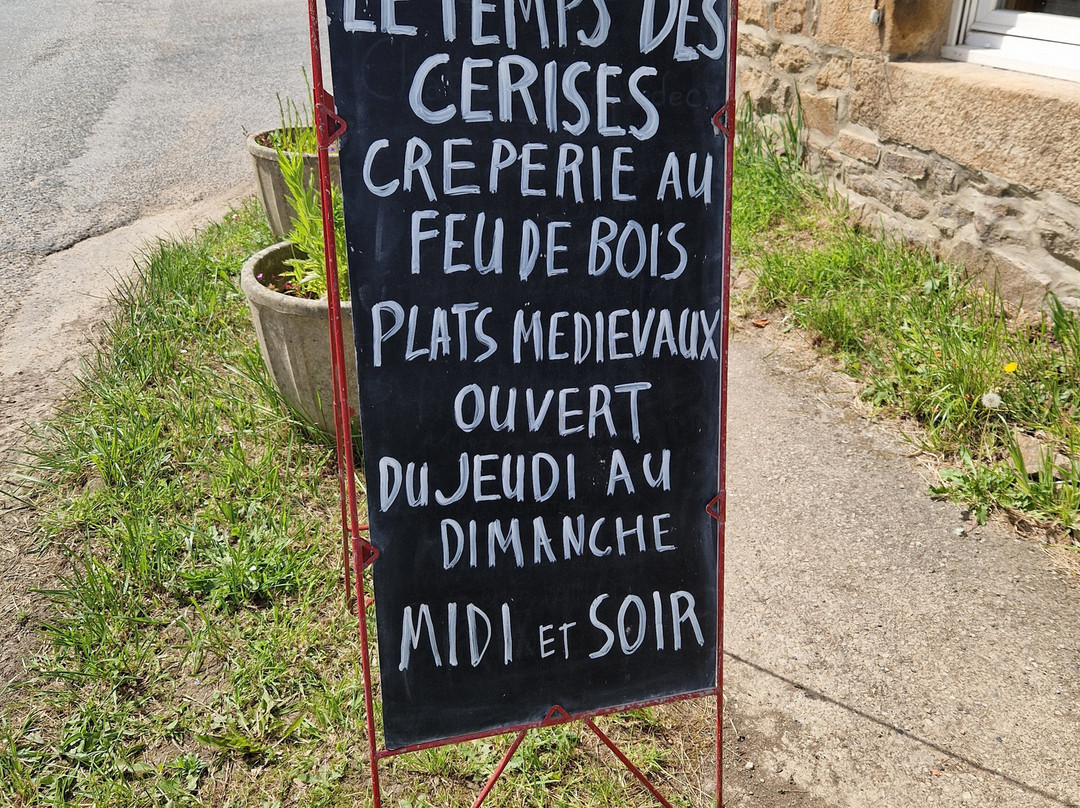 LE TEMPS DES
CERISES
CREPERIE AU
FEU DE BOIS
PLATS MEDIEVAUX
OUVERT
DU JEUDI AU
DIMANCHE
MIDI ET SOIR